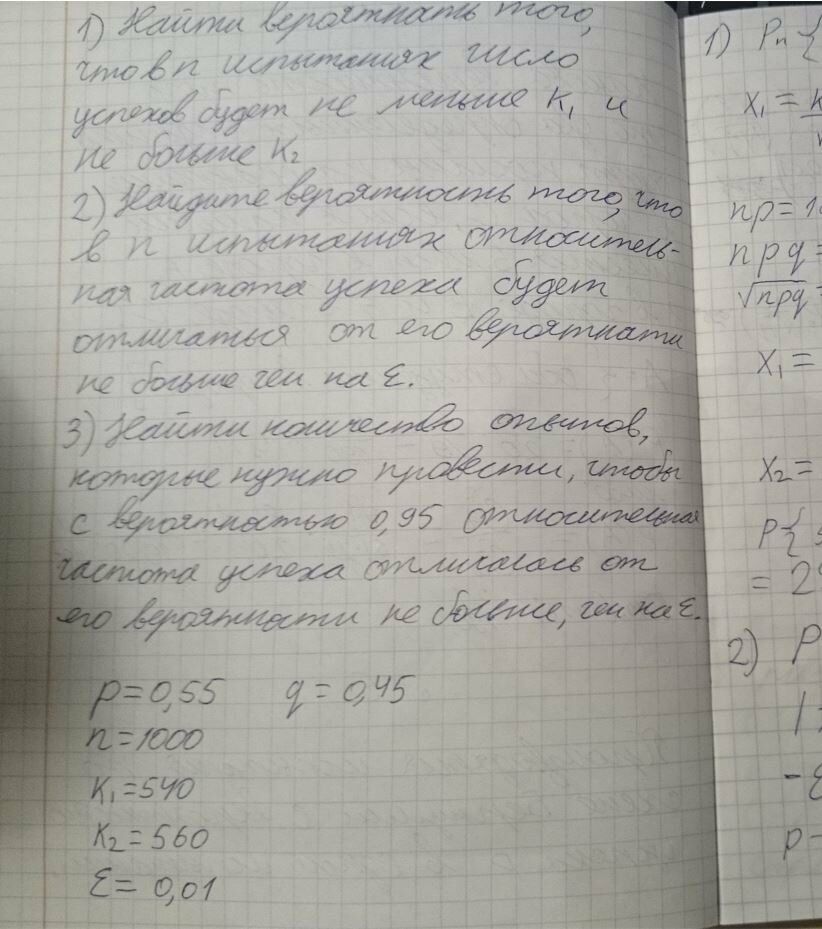 1) Найти вероятнать того,
что в n испытаниях число
успехов будет не меньше K₁ и
не больше K₂
2) Найдите вероятность того, что
в n испытаниях относитель-
ная частота успеха будет
отличаться от его вероятнати
не больше чем на ε.
3) Найти количество опытов,
которые нужно провести, чтобы
с вероятностью 0,95 относительная
частота успеха отличалась от
его вероятности не больше, чем на ε.
p=0,55 q=0,45
n=1000
K₁=540
K₂=560
ε=0,01
1) Pₙ{
x₁=
np=1
npq=
√npq
x₁=
x₂=
P{
=2
2) P
-ε
p-